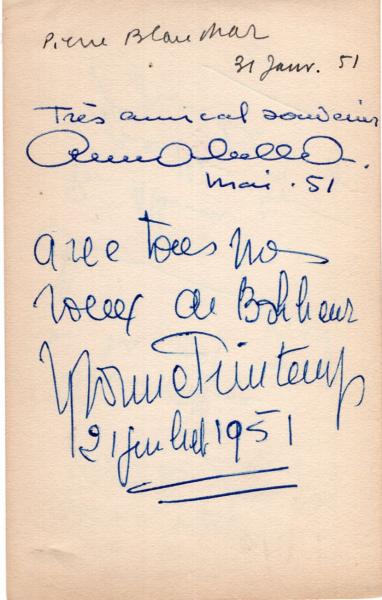 Pierre Blanchar
31 Janv. 51
Très amical souvenir
mai. 51
avec tous nos
voeux de Bonheur
Yvonne Printemps
21 juillet 1951